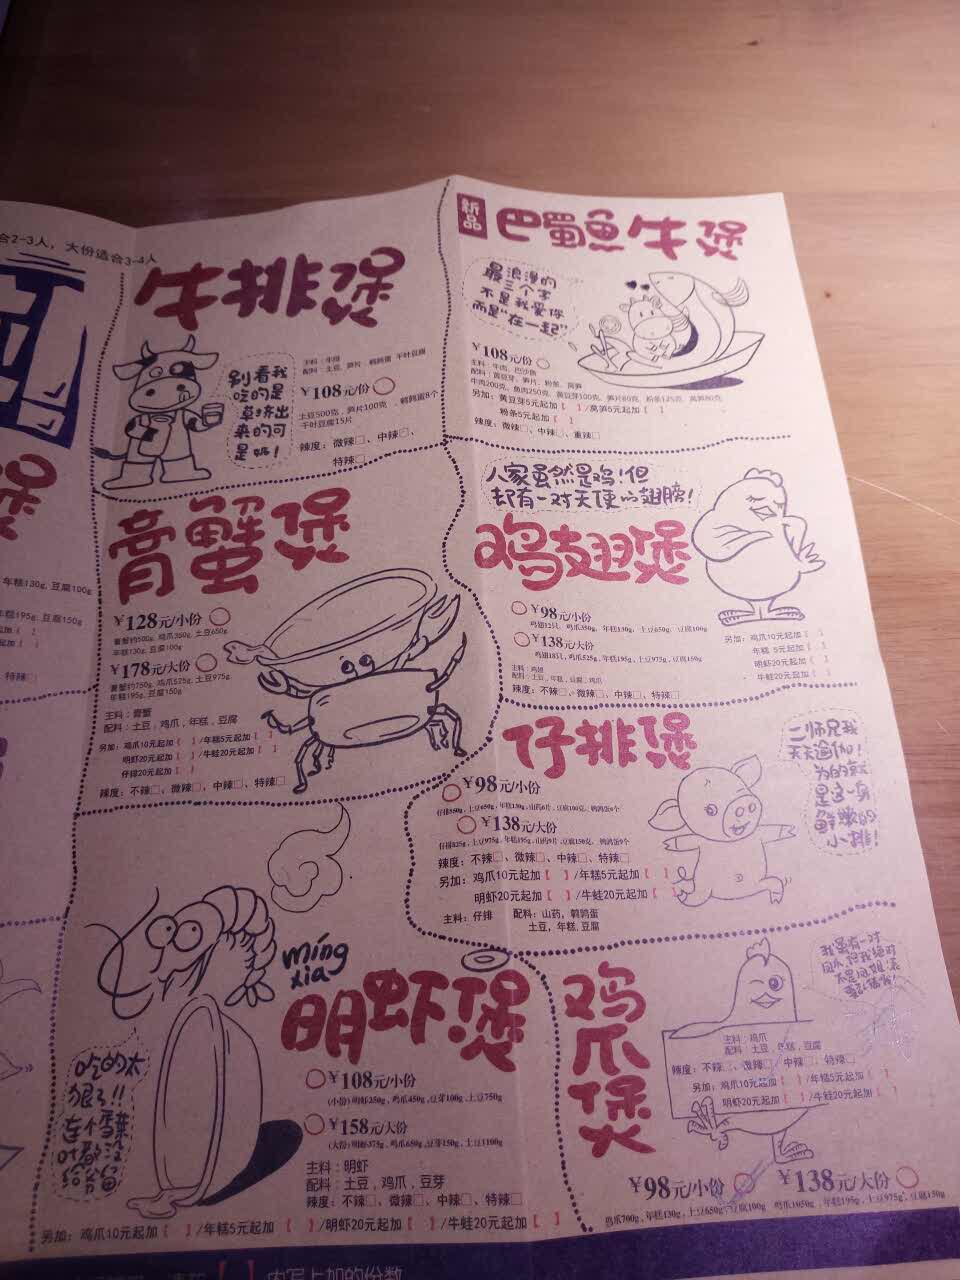 合2-3人，大份适合3-4人
牛排煲
别看我
吃的是
草挤出
来的可
是奶！
主料：牛排
配料：土豆，笋片，鹌鹑蛋 千叶豆腐
¥108元/份
土豆500克，笋片100克，鹌鹑蛋8个
千叶豆腐15片
辣度：微辣□、中辣□、
特辣□
新品
巴蜀鱼牛煲
最浪漫的
三个字
不是我爱你
而是“在一起”
¥108元/份
主料：牛肉，巴沙鱼
配料：黄豆芽，笋片，粉条，莴笋
牛肉200克，鱼肉250克，黄豆芽100克，笋片80克，粉条125克，莴笋80克
另加：黄豆芽5元起加【 】/莴笋5元起加【 】
粉条5元起加【 】
辣度：微辣□、中辣□、重辣□
膏蟹煲
¥128元/小份
膏蟹约500g，鸡爪350g，土豆650g
年糕130g，豆腐100g
¥178元/大份
膏蟹约750g，鸡爪525g，土豆975g
年糕195g，豆腐150g
主料：膏蟹
配料：土豆，鸡爪，年糕，豆腐
另加：鸡爪10元起加【 】/年糕5元起加【 】
明虾20元起加【 】/牛蛙20元起加【 】
仔排20元起加【 】
辣度：不辣□、微辣□、中辣□、特辣□
人家虽然是鸡！但
却有一对天使的翅膀！
鸡翅煲
¥98元/小份
鸡翅12只，鸡爪350g，年糕130g，土豆650g，豆腐100g
¥138元/大份
鸡翅18只，鸡爪525g，年糕195g，土豆975g，豆腐150g
主料：鸡翅
配料：土豆，年糕，豆腐，鸡爪
辣度：不辣□、微辣□、中辣□、特辣□
另加：鸡爪10元起加【 】
年糕 5元起加【 】
明虾20元起加【 】
牛蛙20元起加【 】
仔排煲
¥98元/小份
仔排550g，土豆650g，年糕130g，山药6片，豆腐100克，鹌鹑蛋6个
¥138元/大份
仔排825g，土豆975g，年糕195g，山药9片，豆腐150克，鹌鹑蛋9个
辣度：不辣□、微辣□、中辣□、特辣□
另加：鸡爪10元起加【 】/年糕5元起加【 】
明虾20元起加【 】/牛蛙20元起加【 】
主料：仔排 配料：山药，鹌鹑蛋
土豆，年糕，豆腐
二师兄我
天天逾伽！
为的就
是这一身
鲜嫩的
小排！
míng
xia
明虾煲
吃的太
狠了!!
连个
给
¥108元/小份
(小份)明虾250g，鸡爪450g，豆芽100g，土豆750g
¥158元/大份
(大份)明虾375g，鸡爪650g，豆芽150g，土豆1100g
主料：明虾
配料：土豆，鸡爪，豆芽
辣度：不辣□、微辣□、中辣□、特辣□
另加：鸡爪10元起加【 】/年糕5元起加【 】/明虾20元起加【 】/牛蛙20元起加【 】
鸡爪煲
我虽有一对
凤爪，但我绝对
不是凤姐
主料：鸡爪
配料：土豆，年糕，豆腐
辣度：不辣□、微辣□、中辣□、特辣□
另加：鸡爪10元起加【 】/年糕5元起加【 】
明虾20元起加【 】/牛蛙20元起加【 】
¥98元/小份 ¥138元/大份
鸡爪700g，年糕130g，土豆650g，豆腐100g 鸡爪1050g，年糕195g，土豆975g，豆腐150g
煲
年糕130g，豆腐100g
年糕195g，豆腐150g
起加【 】
起加【 】
特辣□
【 】内写上加的份数